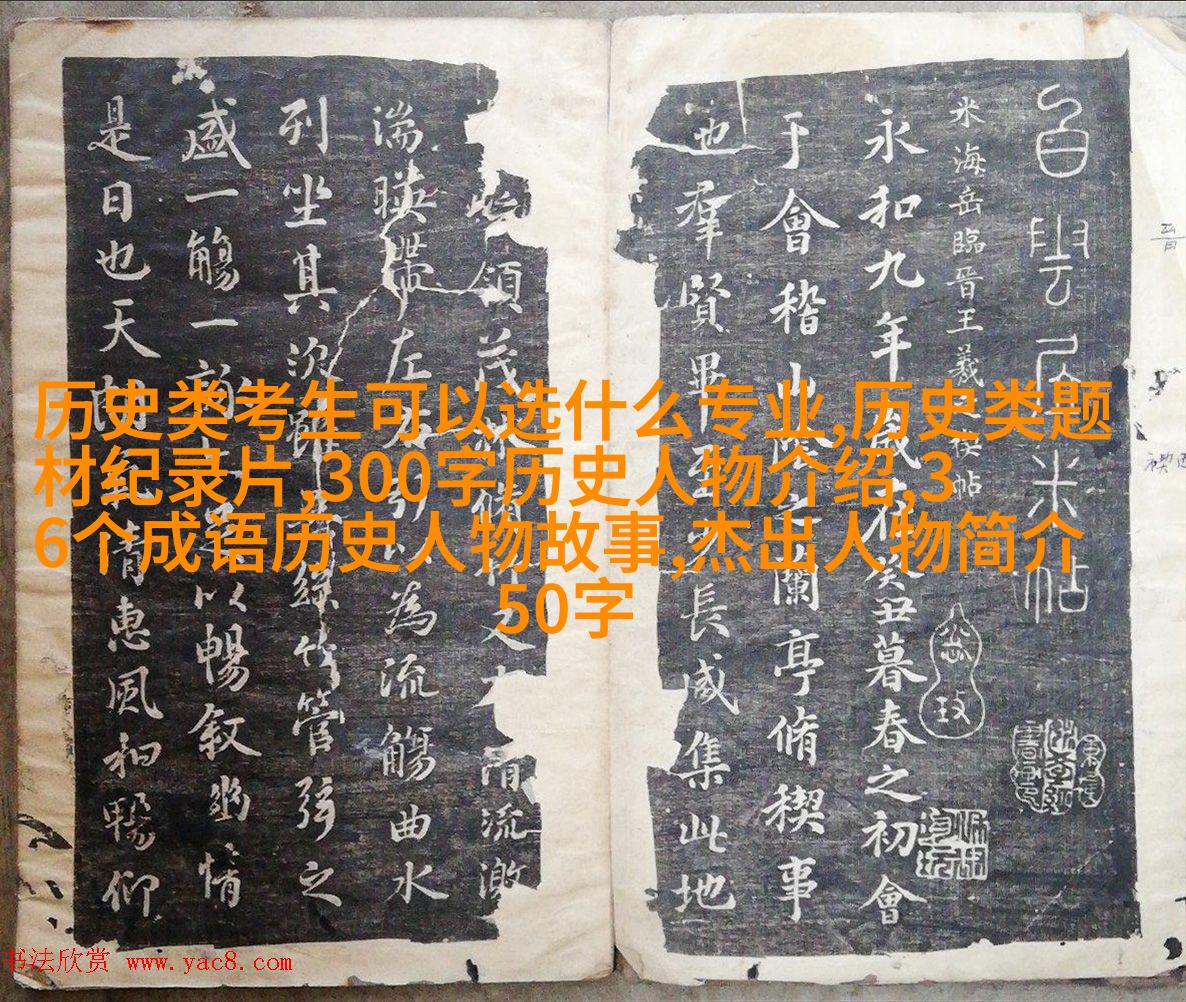 米海岳臨晉王羲之禊帖
永和九年歲在癸丑暮春之初會
于會稽山陰之蘭亭脩稧事
也羣賢畢至少長咸集此地
領茂林脩竹又有清流激
湍暎帶左右引以為流觴曲水
列坐其次雖無絲竹管弦之
盛一觴一詠足以暢叙幽情
是日也天朗氣清惠風和暢仰
历史类考生可以选什么专业,历史类题
材纪录片,300字历史人物介绍,3
6个成语历史人物故事,杰出人物简介
50字
书法欣赏 www.yac8.com